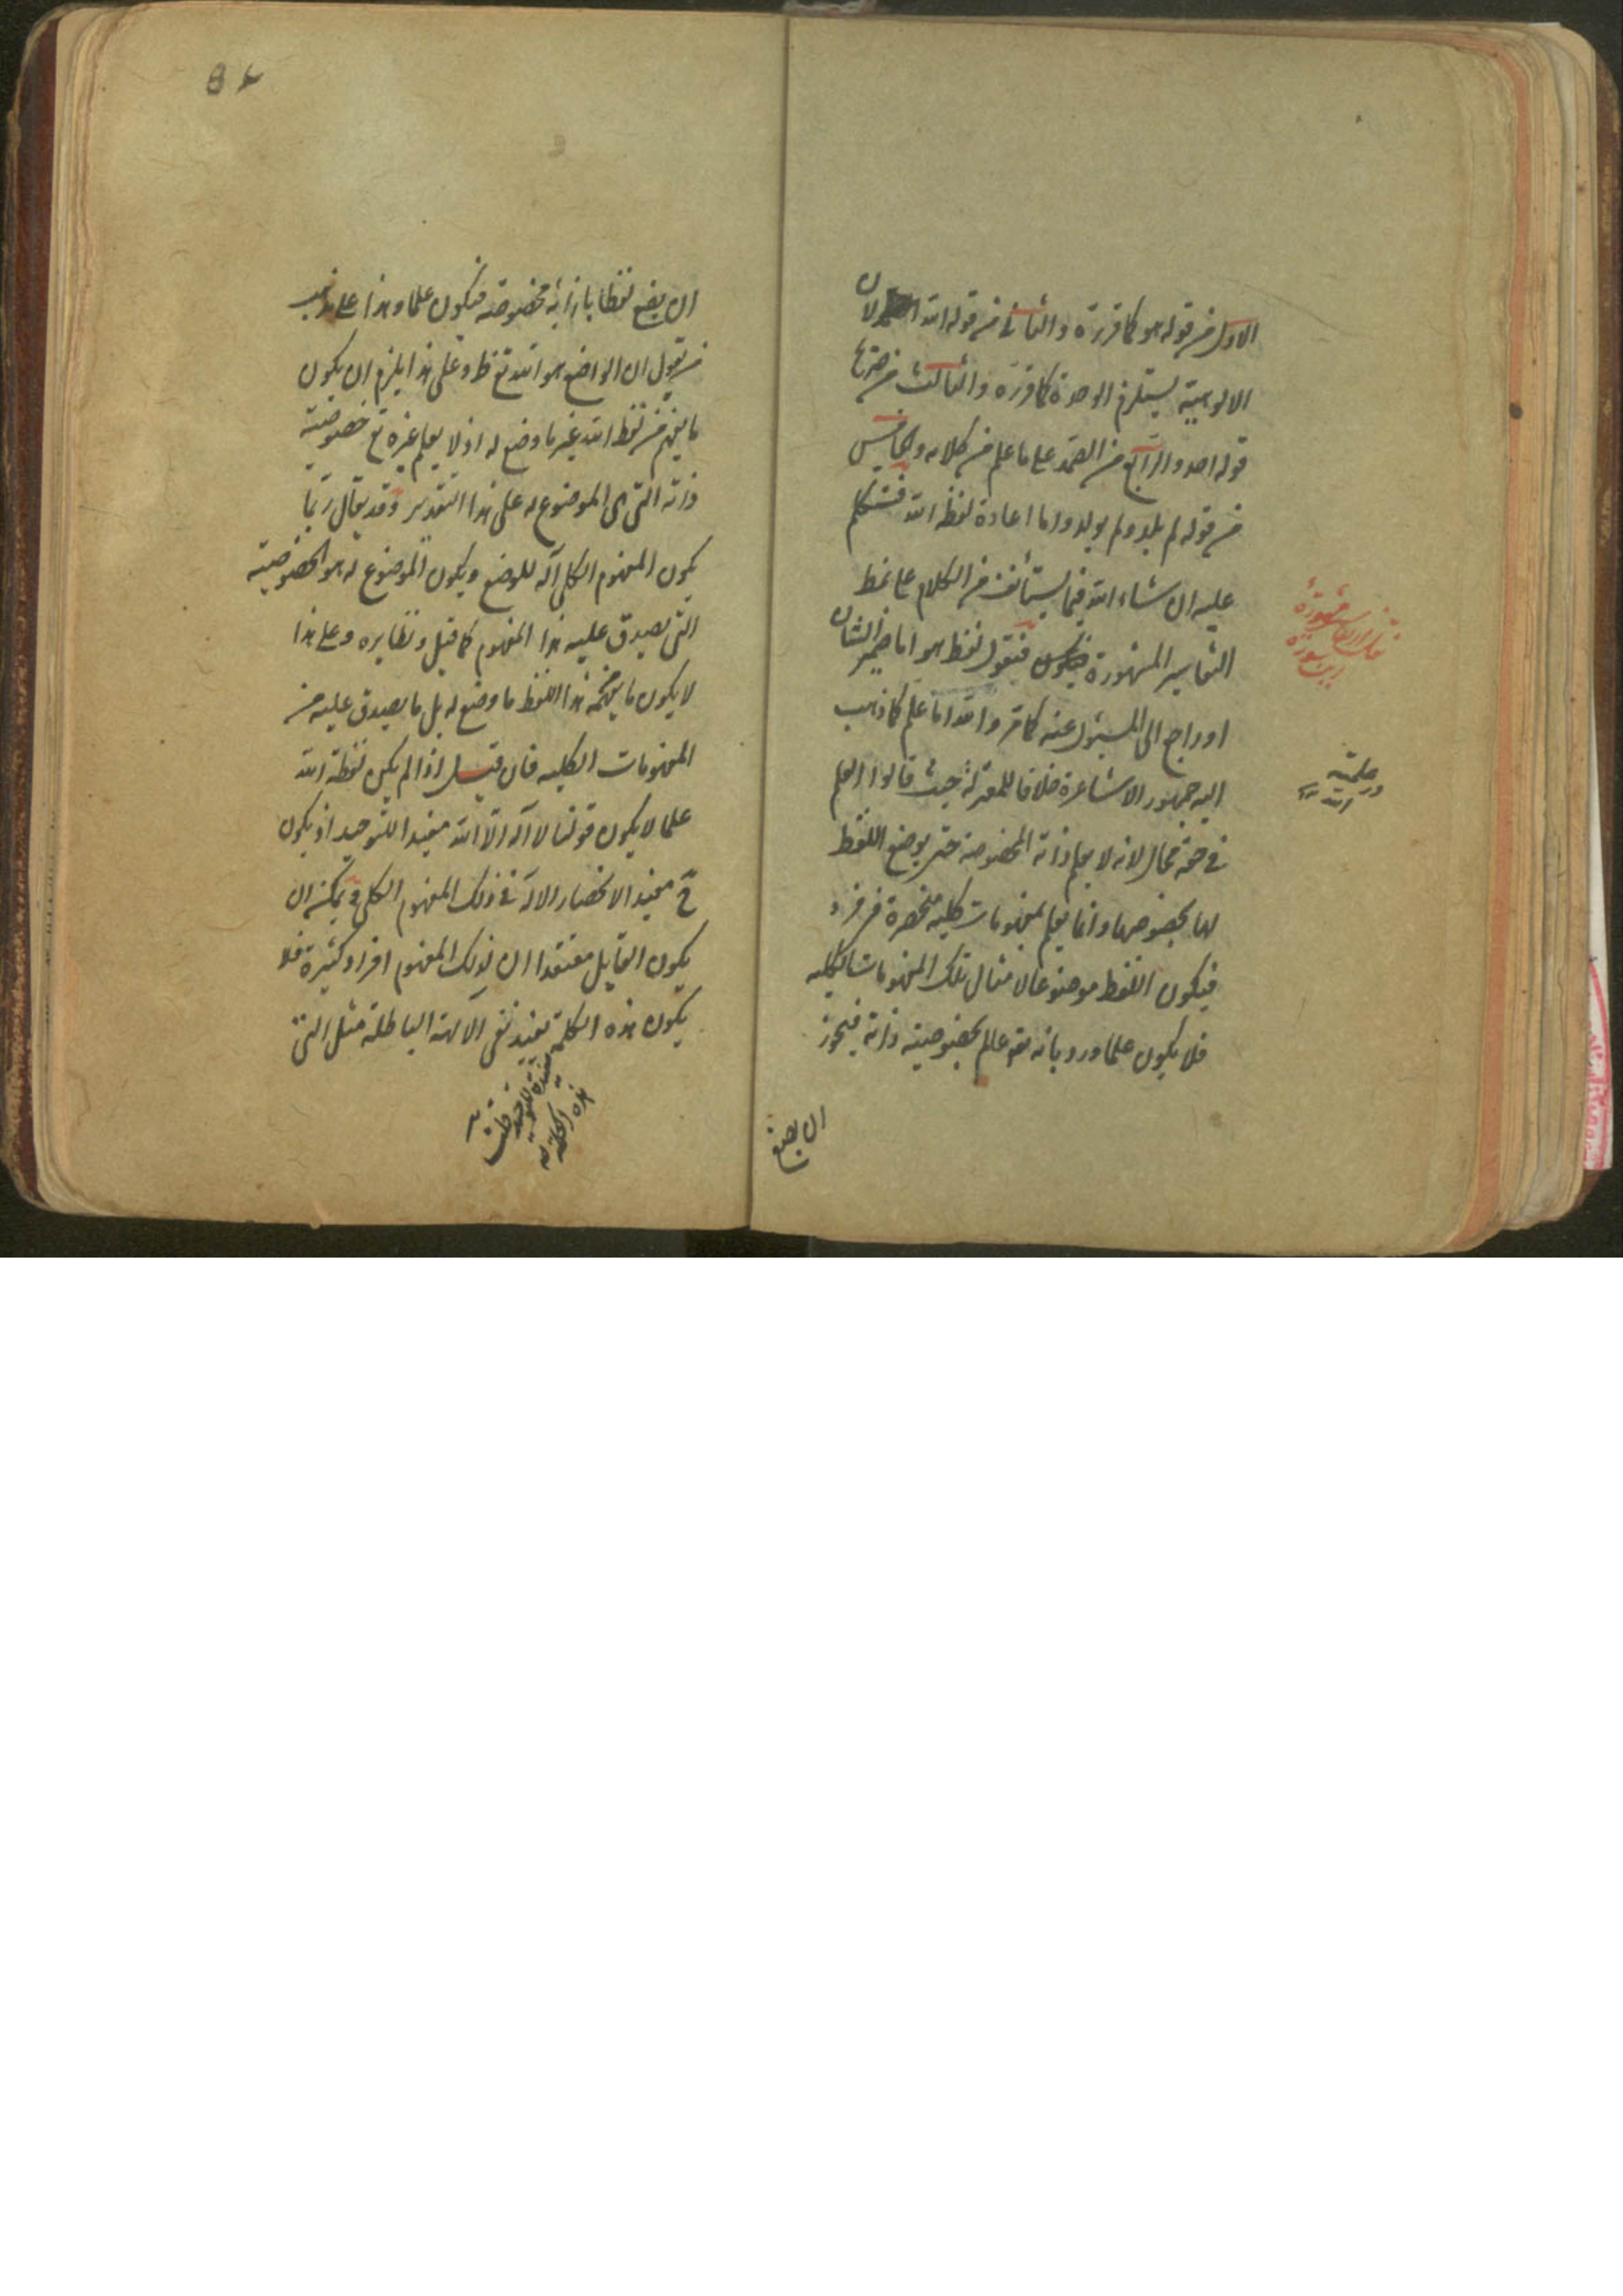 الاول من قوله هو كما قررته والثانى من قوله الله لان
الالوهية يستلزم الوحدة كما قرره والثالث من صريح
قوله احد والرابع من الصمد على ما علم من كلامه والخامس
من قوله لم يلد ولم يولد واما اعادة لفظ الله فسنتكلم
عليه ان شاء الله فيما يستأنف من الكلام على نمط
التفاسير المشهورة فنقول لفظ هو اما ضمير الشان
او راجع الى المسئول عنه كما مر والله اما علم كما ذهب
اليه جمهور الاشاعرة خلافا للمعتزلة حيث قالوا العلم
فى حقه محال لانه لا يعلم ذاته المخصوصة حتى يوضع اللفظ
لها بخصوصها وانما يعلم بمفهومات كليه منحصرة فى فرد
فيكون اللفظ موضوعا لامثال تلك المفهومات الكليه
فلا يكون علما ورد بانه تعم عالم بخصوصية ذاته فيجوز
ان يضع
در علمية
الله
ان يضع لفظا بازائه مخصوصه فيكون علما وهذا على مذهب
من يقول ان الواضع هو الله تع ظ وعلى هذا يلزم ان يكون
ما يفهم من لفظ الله غير ما وضع له اذ لا يعلم غيره تع خصوصية
ذاته التى هى الموضوع له على هذا التقدير وقد يقال ربما
يكون المفهوم الكلى آلة للوضع ويكون الموضوع له هو الخصوصية
التى يصدق عليه هذا المفهوم كما قيل ونظايره وعلى هذا
لا يكون ما يفهمه هذا اللفظ ما وضع له بل ما يصدق عليه من
المفهومات الكليه فان قيل اذا لم يكن لفظة الله
علما لا يكون قولنا لا اله الا الله مفيدا للتوحيد اذ يكون
ح مفيد الانحصار الاله فى ذلك المفهوم الكلى ويمكن ان
يكون القايل معتقدا ان لذلك المفهوم افراد كثيرة فلا
يكون هذه الكلمة تفيد نفى الالهة الباطلة مثل التى
هذه الكلمة
مفيدة للتوحيد
قلت